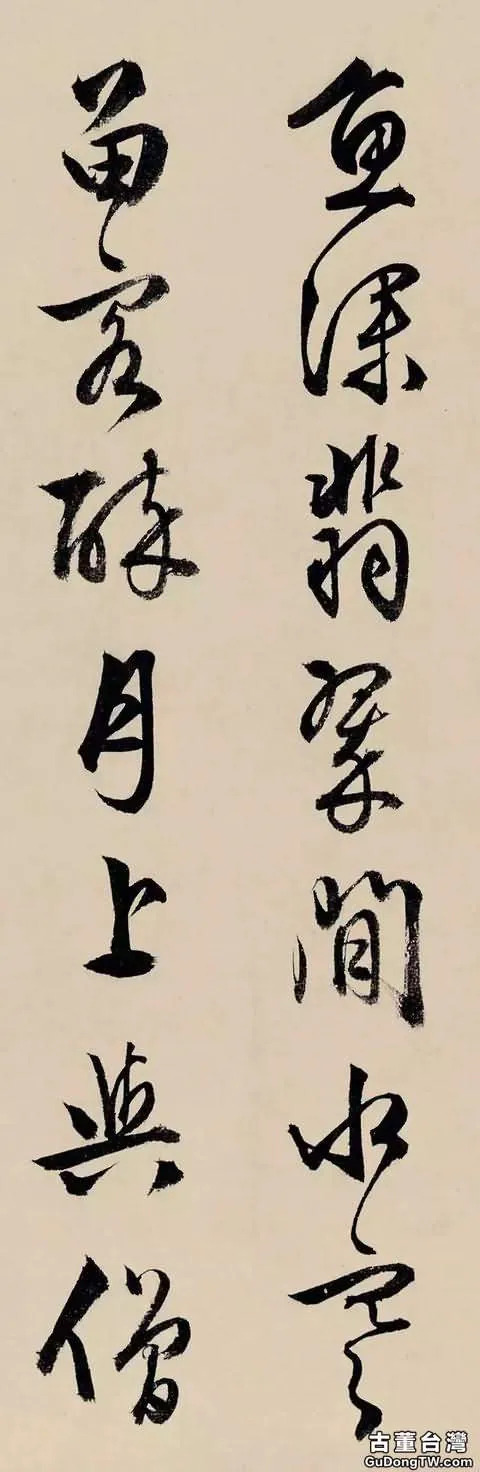 魚深翡翠閒水寒
留客醉月上與僧
古董台灣
GuDongTW.com